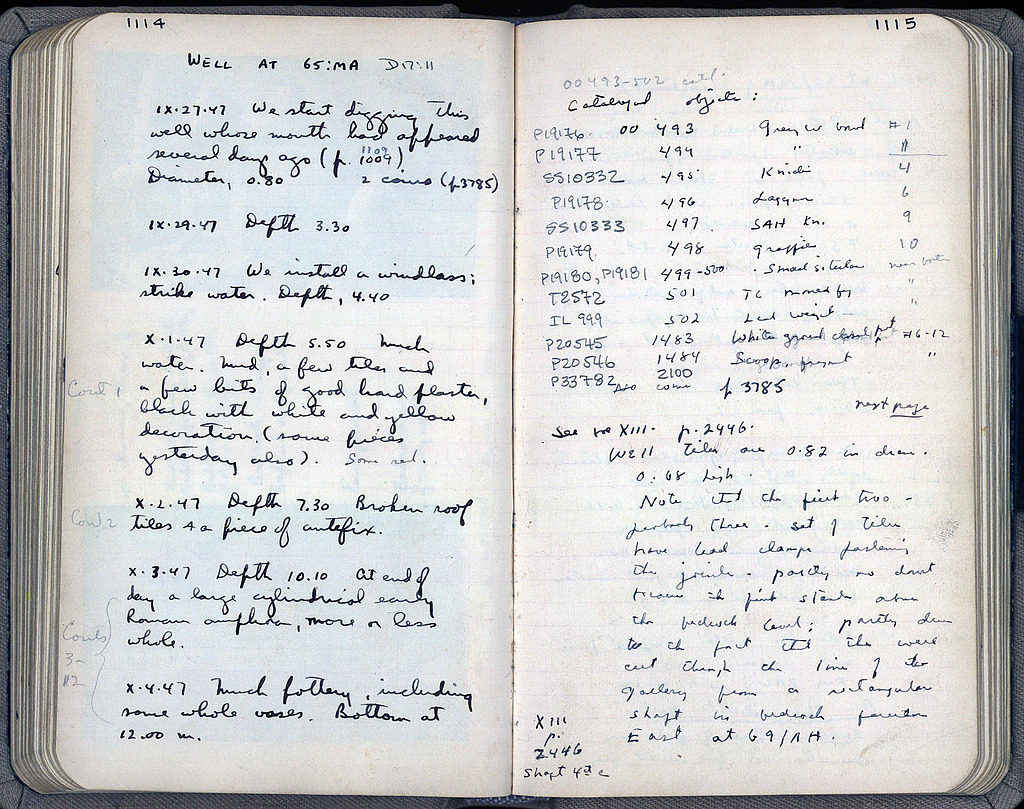 1114
WELL AT 65:MA D17:11
IX.27.47 We start digging this
well whose mouth had appeared
1109
several days ago (p. 1009)
Diameter, 0.80 2 coins (p 3785)
IX.29.47 Depth 3.30
IX.30.47 We install a windlass;
strike water. Depth, 4.40
X.1.47 Depth 5.50 Much
water. Mud, a few tiles and
Cont 1
a few bits of good hard plaster,
black with white and yellow
decoration. (some pieces
yesterday also). Some red.
X.2.47 Depth 7.30 Broken roof
Cont. 2
tiles & a piece of antefix.
X.3.47 Depth 10.10 At end of
day a large cylindrical early
Roman amphora, more or less
Conts
whole.
3-
12
X.4.47 Much pottery, including
some whole vases. Bottom at
12.00 m.
1115
OO 493-502 catl.
Catalogued objects:
P19176 OO 493 Grey w bowl #1
P19177 494 " "
SS10332 495 Knidi 4
P19178 496 Lagynos 6
SS10333 497 SAH Kn. 9
P19179 498 10
P19180, P19181 499-500 Small
T2572 501 TC "
IL 999 502 Lead weight "
P20545 1483 White ground pot #6-12
P20546 1484 "
P33782 2100
coins p 3785
next page
See XIII. p. 2446.
Well tiles are 0.82 in diam.
0.68 high.
Note that the first two -
perhaps three - set of tiles
have lead clamps fastening
the joints - partly no doubt
because the first stands above
the bedrock level; partly due
to the fact that the well
cut through the line of the
gallery from a rectangular
shaft in bedrock further
East at 69/ΛH.
XIII
p.
2446
Shaft 4th c